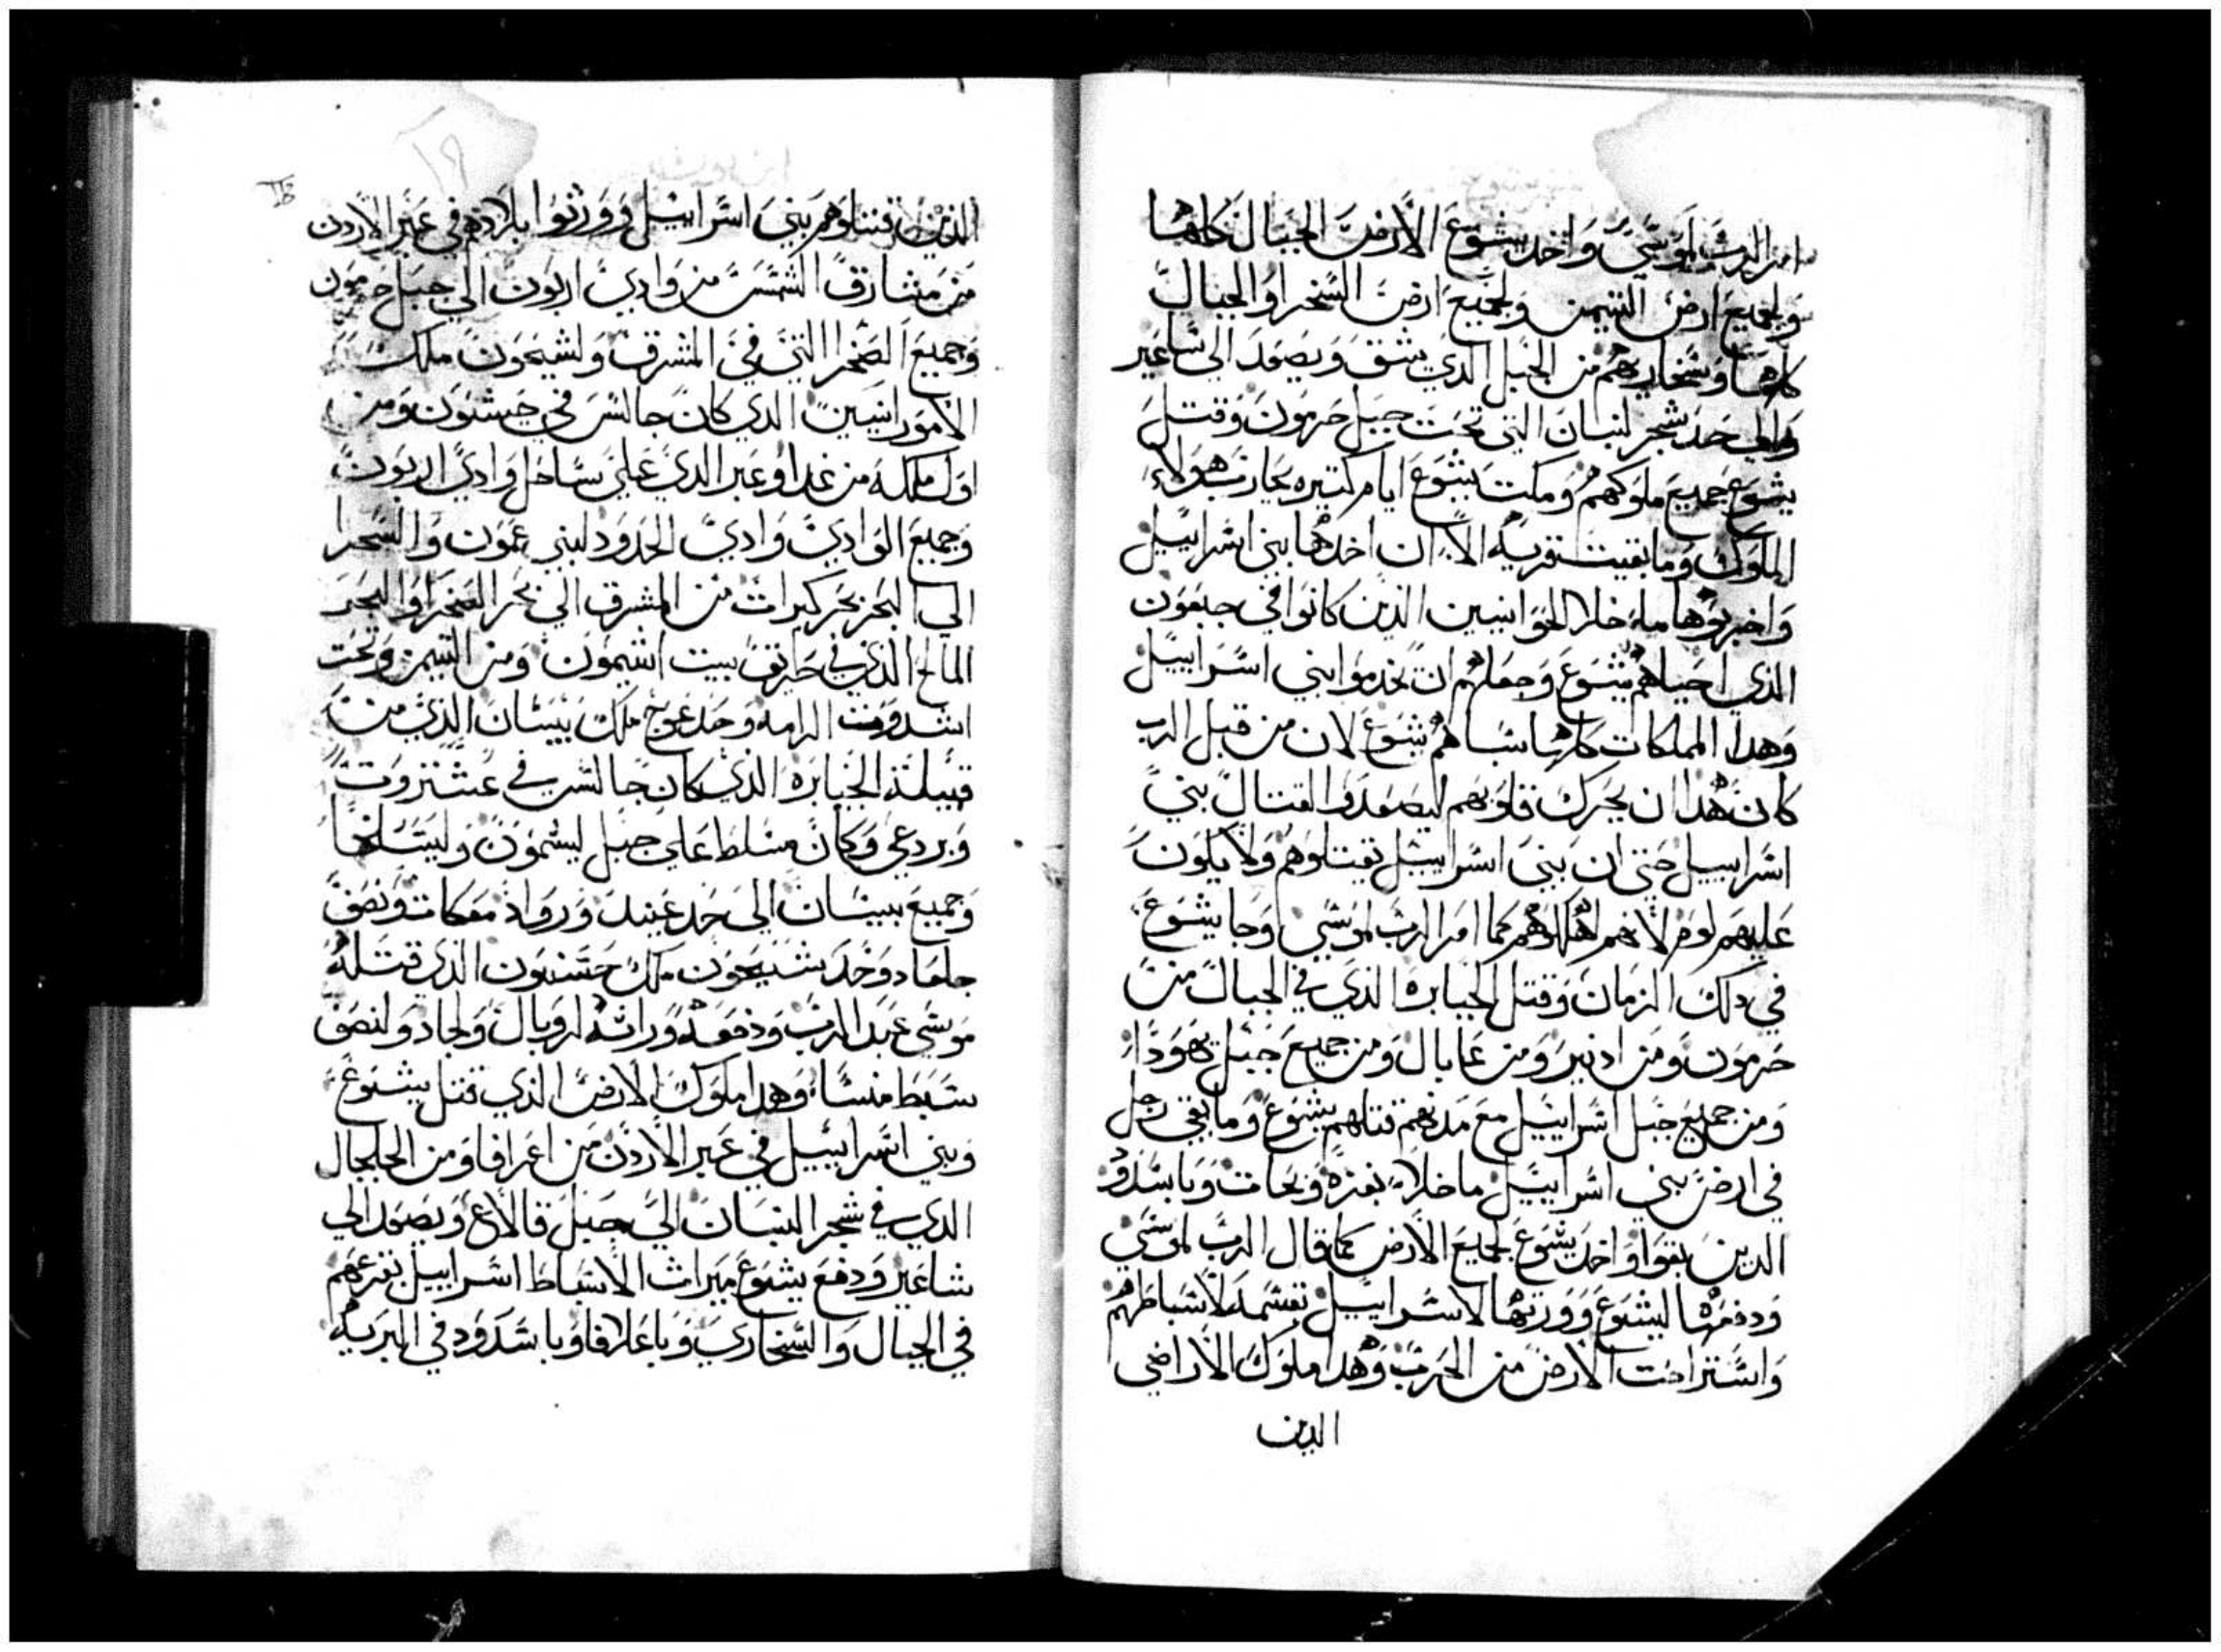 امر الرب لموسي واخد يشوع الارض الجبال كلها
ولجميع ارض التيمن ولجميع ارض السخرا والجبال
كلها وسخاريهم من الجبل الذي يشق ويصعد الى ساعير
والي حد شجر لبنان التي تحت جبل حرمون وقتل
يشوع جميع ملوكهم ومكت يشوع ايام كتيره يحارب هولاء
الملوك وما بقيت قريه الا ان اخدها بني اسراييل
واخربوها ما خلا الحوانيين الذين كانوا في جبعون
الذي احياهم يشوع وجعلهم ان يخدموا بني اسراييل
وهدا المملكات كلها سباهم يشوع لان من قبل الرب
كان هدا ان يحرك قلوبهم ليصعدوا لقتال بني
اسراييل حتى ان بني اسراييل تقتلوهم ولا يكون
عليهم لوم لانهم اهلكوهم كما امر الرب لموسي وجا يشوع
في دلك الزمان وقتل الجبابره الذي في الجبال من
حرمون ومن ادبير ومن عابال ومن جميع جبل يهودا
ومن جميع جبل اسراييل مع مدنهم قتلهم يشوع وما بقي رجل
في ارض بني اسراييل ما خلا بغزه وبجات وباسدود
الدين بقوا واخد يشوع لجميع الارض كما قال الرب لموسي
ودفعها ليشوع وورثها لاسراييل تقسمه لاسباطهم
واستراحت الارض من الحرب وهدا ملوك الاراضي
الدين
١٩
الذين قتلوهم بني اسراييل وورثوا بلادهم في عبر الاردن
من مشارق الشمس من وادي اربون الي جبل حرمون
وجميع الصخرا التي في المشرق ولشيحون ملك
الاموراسيين الدي كان جالس في حبشبون ومن
اول ملكه من عداوعبر الدي علي ساحل وادي اربون
وجميع الوادي وادي الحدود لبني عمون والسحرا
الي البحر بحر كيرات من المشرق الي بحر الصخرا والبحر
المالح الذي في طريق بيت اشيمون ومن التيمن وتحت
اسدوت الرامه وحد عوج ملك بيسان الذي من
قبيلة الجبابره الذي كان جالس في عشتروت
وبردعي وكان مسلط علي جبل ليشمون وليتسلخا
وجميع بيسان الى حد عبيد ورواد معكات ونصف
جلعاد وحد شيحون ملك حسبون الذي قتله
موسي عبد الرب ودفعه وراثه لروبال ولجاد ولنصف
سبط منسا وهدا ملوك الارض الذي قتل يشوع
وبني اسراييل في عبر الاردن من اعرافا ومن الجلجال
الدي في شجر البنان الي جبل قالاع ويصعد الي
ساعير ودفع يشوع ميراث الاسباط اسراييل بقرعهم
في الجبال والسخاري وباعلافا وباسدود في البريه